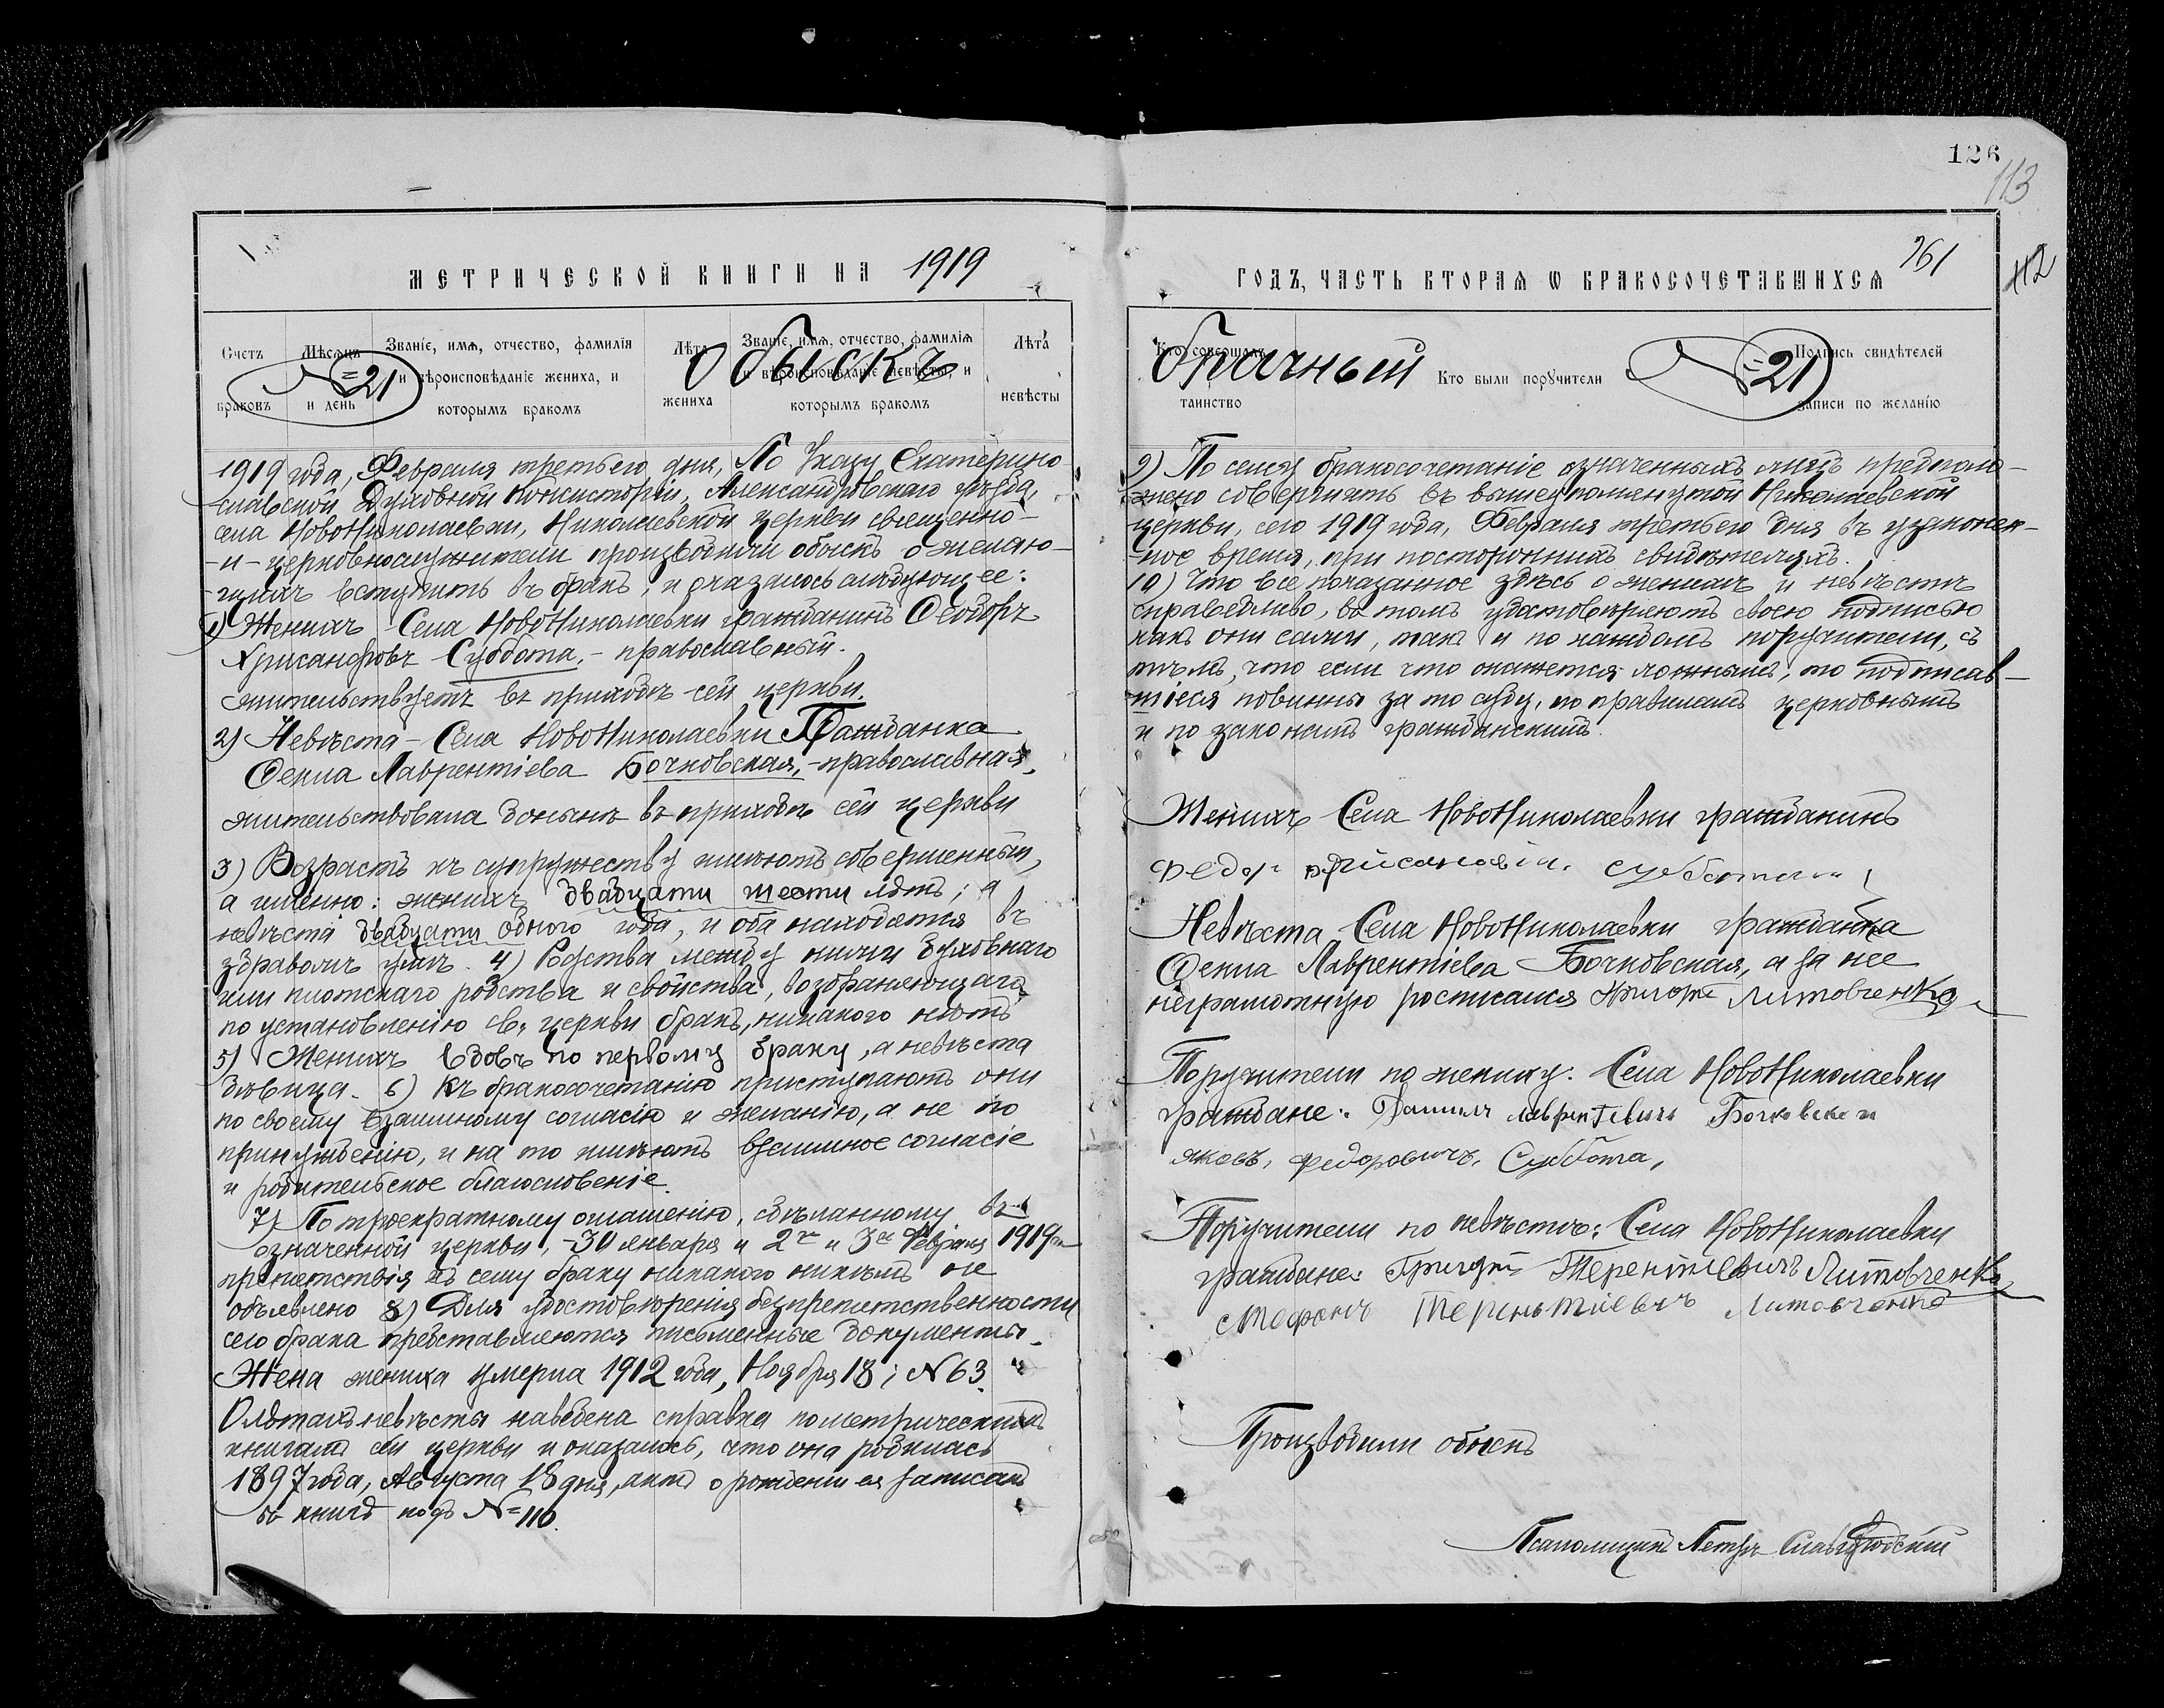 126
113
МЕТРИЧЕСКОЙ КНИГИ НА 1919
ГОДЪ, ЧАСТЬ ВТОРАЯ Ѡ БРАКОСОЧЕТАВШИХСЯ
261
112
Счетъ браковъ
Мѣсяцъ и день
Званіе, имя, отчество, фамилія и вѣроисповѣданіе жениха, и которымъ бракомъ
Лѣта жениха
Званіе, имя, отчество, фамилія и вѣроисповѣданіе невѣсты, и которымъ бракомъ
Лѣта невѣсты
Кто совершалъ таинство
Кто были поручители
Подпись свидѣтелей записи по желанію
№ 21 Обыскъ
брачный № 21
1919 года, Февраля третьего дня, По Указу Екатерино-
славской Духовной Консисторіи, Александровскаго уѣзда,
села НовоНиколаевки, Николаевской церкви священно-
-и-церковнослужители производили обыскъ о желаю-
-щихъ вступить въ бракъ, и оказалось слѣдующее:
1) Женихъ - Села НовоНиколаевки гражданинъ Ѳеодоръ
Хрисанфовъ Суббота, - православный.
жительствуетъ въ приходѣ сей церкви.
2) Невѣста - Села НовоНиколаевки Гражданка
Ѳекла Лаврентіева Бочковская, - православная,
жительствовала донынѣ въ приходѣ сей церкви
3) Возрастъ къ супружеству имѣютъ совершенный,
а именно: женихъ двадцати шести лѣтъ; а
невѣста двадцати одного года, и оба находятся въ
здравомъ умѣ. 4) Родства между ними духовнаго
или плотскаго родства и свойства, возбраняющаго
по установленію св. церкви бракъ, никакого нѣтъ
5) Женихъ вдовъ по первому браку, а невѣста
дѣвица. 6) Къ бракосочетанію приступаютъ они
по своему взаимному согласію и желанію, а не по
принужденію, и на то имѣютъ взаимное согласіе
и родительское благословеніе.
7) По троекратному оглашенію, сдѣланному въ
означенной церкви, -30 января и 2го и 3го Февраля 1919го
препятствія къ сему браку никакого никѣмъ не
объявлено 8) Для удостовѣренія безпрепятственности
сего брака представляются письменные документы.
Жена жениха умерла 1912 года, Ноября 18; № 63.
О лѣтахъ невѣсты наведена справка по метрическимъ
книгамъ сей церкви и оказалось, что она родилась
1897 года, Августа 18 дня, актъ о рожденіи ея записанъ
въ книгѣ подъ № 110.
9) По сему бракосочетаніе означенныхъ лицъ предполо-
жено совершить въ вышеупомянутой Николаевской
церкви, сего 1919 года, Февраля третьего дня въ узаконен-
-ное время, при постороннихъ свидѣтеляхъ.
10) Что все показанное здѣсь о женихѣ и невѣстѣ
справедливо, въ томъ удостовѣряютъ своею подписью
какъ они сами, такъ и по каждомъ поручители, съ
тѣмъ, что если что окажется ложнымъ, то подписав-
шіеся повинны за то суду, по правиламъ церковнымъ
и по законамъ гражданскимъ.
Женихъ Села НовоНиколаевки гражданинъ
Федор Суббота
Невѣста Села НовоНиколаевки гражданка
Ѳекла Лаврентіева Бочковская, а за нее
неграмотную росписался Григорій Литовченко
Поручители по жениху: Села НовоНиколаевки
граждане: Данилъ Лаврентевичъ Бочковский
яковъ, федоровичъ, Суббота,
Поручители по невѣстѣ: Села НовоНиколаевки
граждане: Григорій Терентіевичъ Литовченко
Стефанъ Терентіевичъ Литовченко
Производили обыскъ
Псаломщикъ Петръ